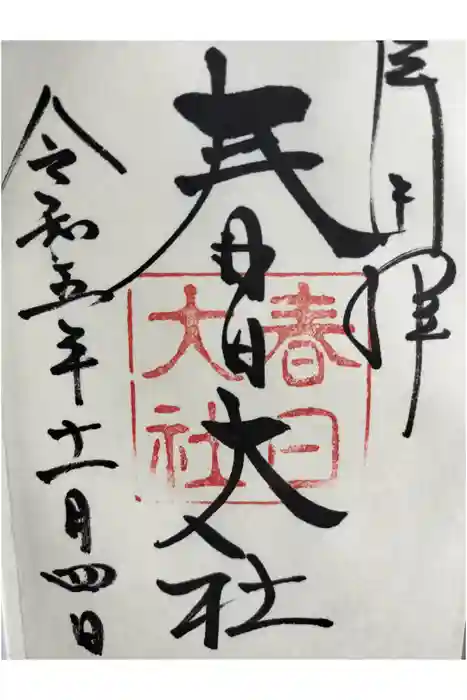 春日大社
春日
大社
令和五年十一月四日